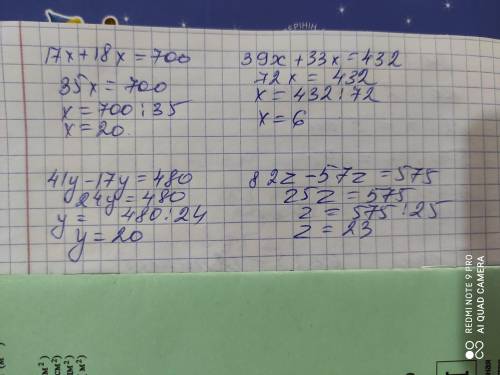 ЕРІНІН
17x+18x=700
35x=700
x=700:35
x=20.
39x+33x=432
72x=432
x=432:72
x=6
41y-17y=480
24y=480
y=480:24
y=20
82z-57z=575
25z=575
z=575:25
z=23
REDMI NOTE 9 PRO
AI QUAD CAMERA